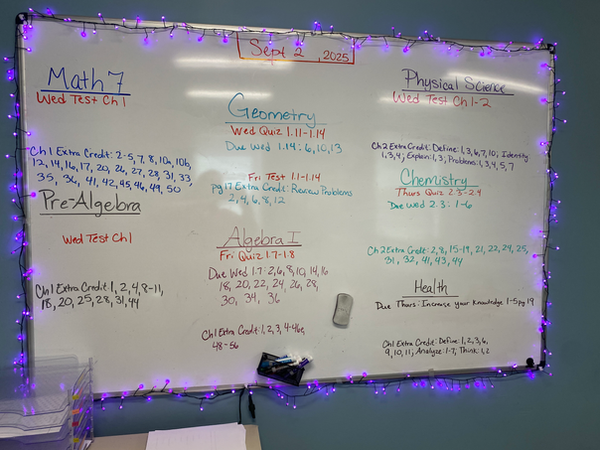 Sept 2, 2025
Math 7
Wed Test Ch 1
Ch 1 Extra Credit: 2-5, 7, 8, 10a, 10b,
12, 14, 16, 17, 20, 26, 27, 28, 31, 33,
35, 36, 41, 42, 45, 46, 49, 50
Pre-Algebra
Wed Test Ch 1
Ch 1 Extra Credit: 1, 2, 4, 8-11,
18, 20, 25, 28, 31, 44
Geometry
Wed Quiz 1.11-1.14
Due Wed 1.14: 6, 10, 13
Fri Test 1.1-1.14
pg 17 Extra Credit: Review Problems
2, 4, 6, 8, 12
Algebra I
Fri Quiz 1.7-1.8
Due Wed 1.7: 2, 6, 8, 10, 14, 16
18, 20, 22, 24, 26, 28,
30, 34, 36
Ch 1 Extra Credit: 1, 2, 3, 4-46e,
48-56
Physical Science
Wed Test Ch 1-2
Ch 2 Extra Credit: Define: 1, 3, 6, 7, 10; Identify
1, 3, 4; Explain: 1, 3; Problems: 1, 3, 4, 5, 7
Chemistry
Thurs Quiz 2.3-2.4
Due Wed 2.3: 1-6
Ch 2 Extra Credit: 2, 8, 15-19, 21, 22, 24, 25,
31, 32, 41, 43, 44
Health
Due Thurs: Increase your Knowledge 1-5 pg 19
Ch 1 Extra Credit: Define: 1, 2, 3, 6,
9, 10, 11; Analyze: 1-7; Think: 1, 2